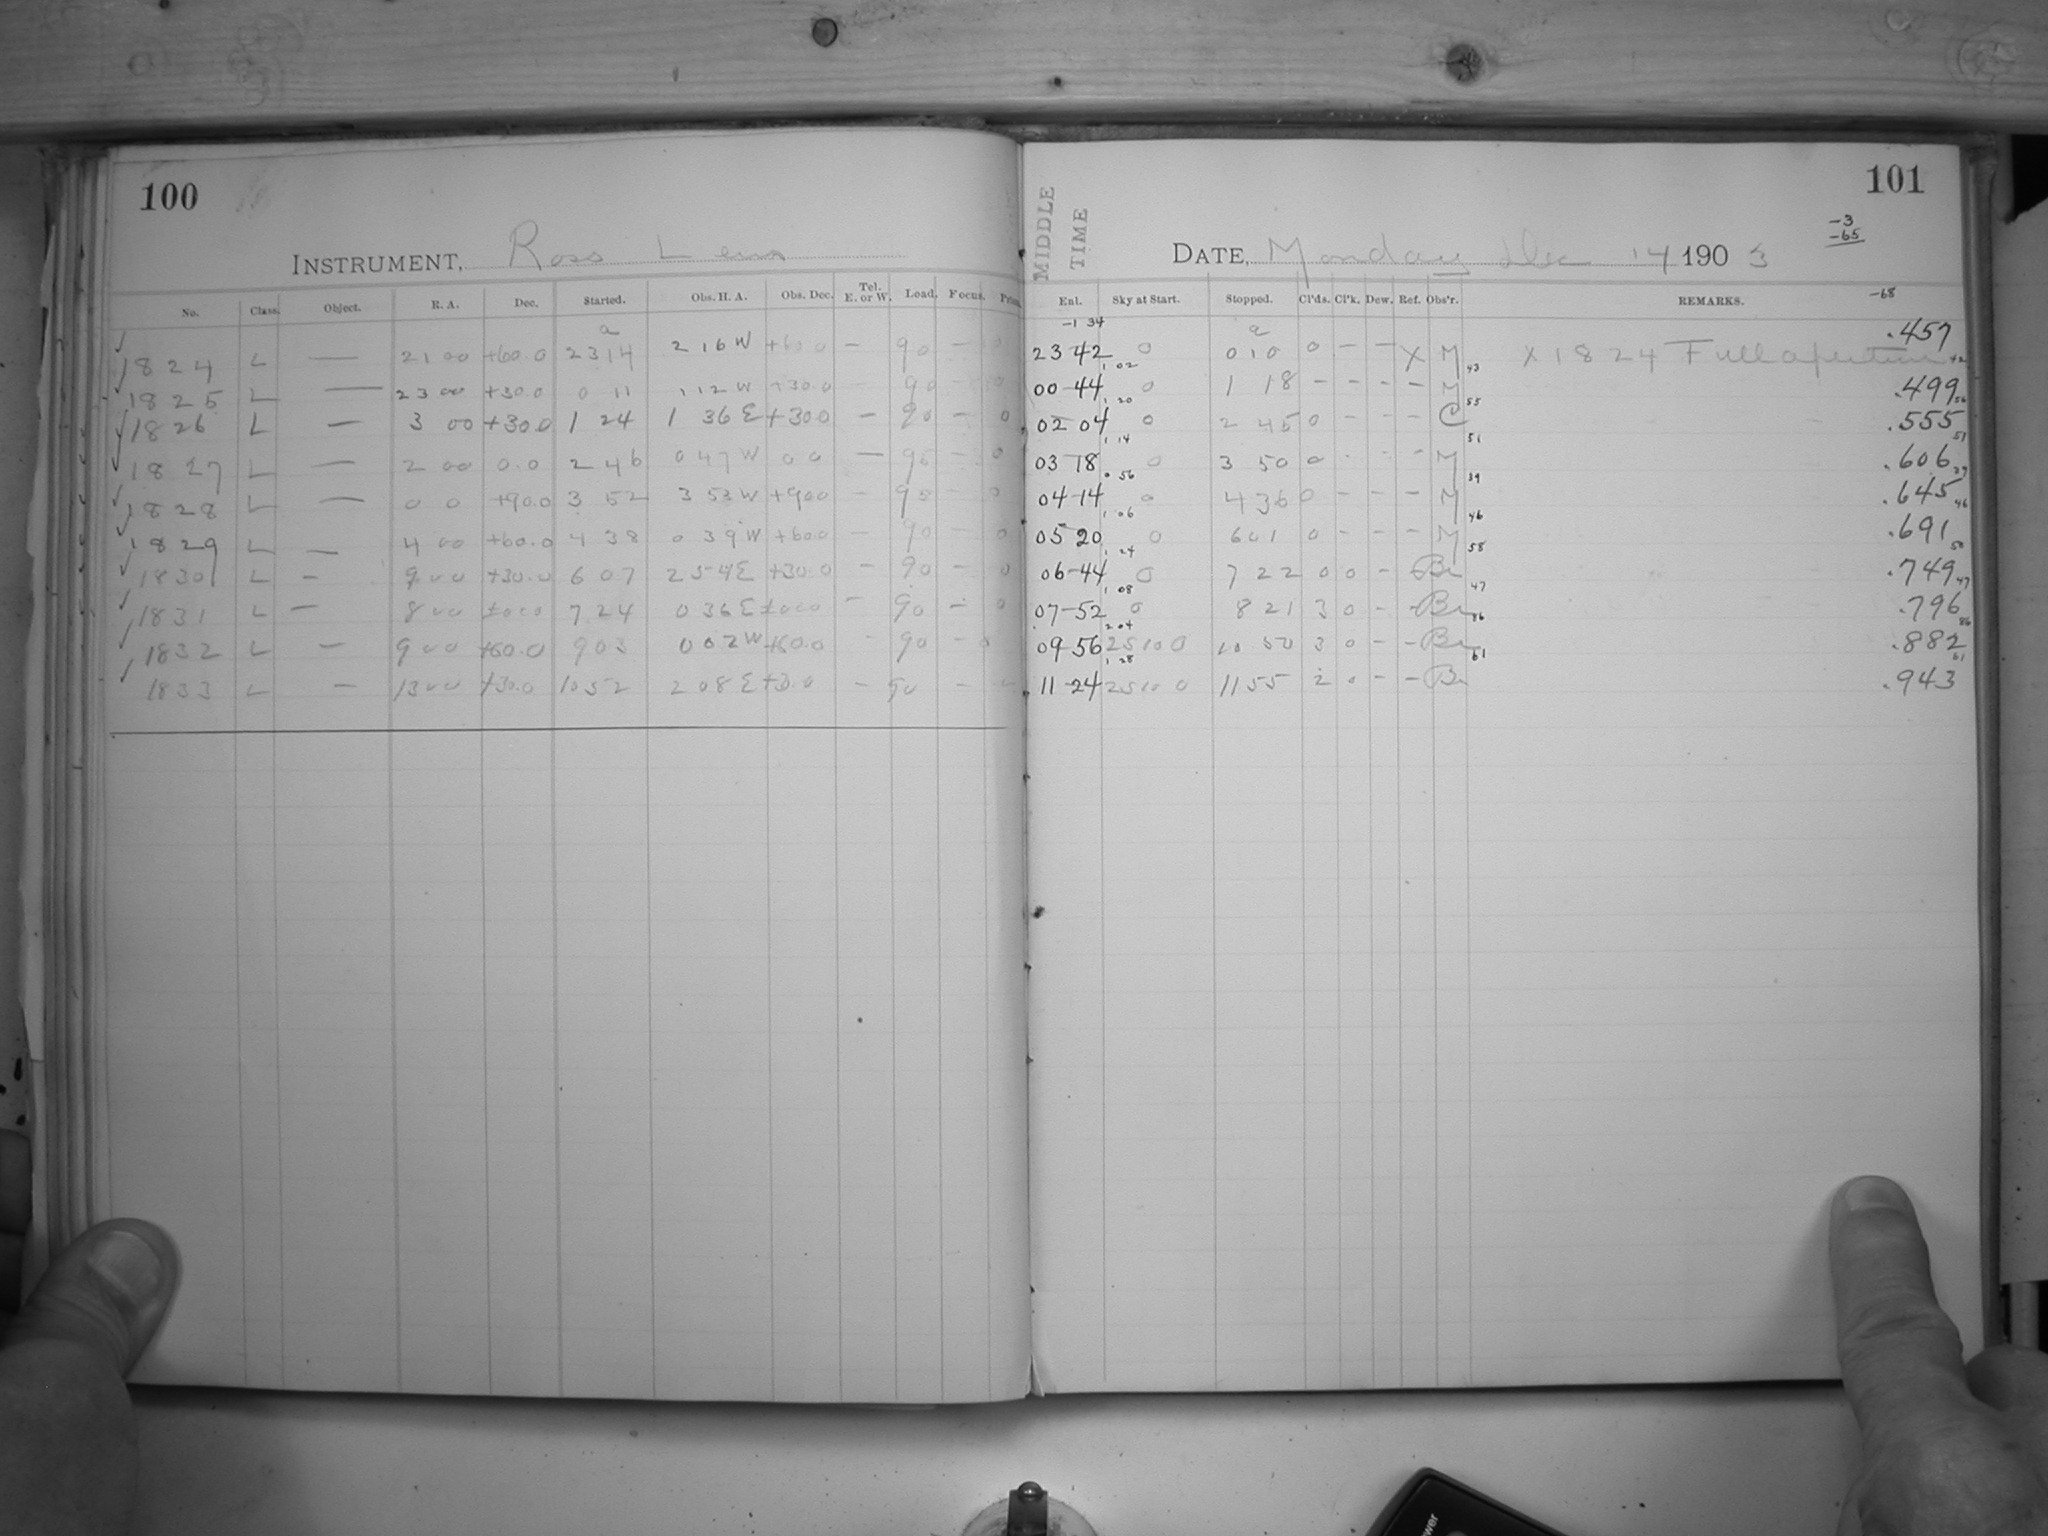 100
INSTRUMENT, Ross Lens
No. Class. Object. R. A. Dec. Started. Obs. H. A. Obs. Dec. Tel. E. or W. Load. Focus.
a
1824 L — 21 00 +60.0 23 14 2 16 W +60 0 — 90 — 0
1825 L — 23 00 +30.0 0 11 1 12 W +30.0 — 90 — 0
1826 L — 3 00 +30.0 1 24 1 36 E +30 0 — 90 — 0
1827 L — 2 00 0.0 2 46 0 47 W 0 0 — 90 — 0
1828 L — 0 0 +90.0 3 52 3 53 W +90 0 — 90 — 0
1829 L — 4 00 +60.0 4 38 0 39 W +60 0 — 90 — 0
1830 L — 9 00 +30.0 6 07 2 54 E +30 0 — 90 — 0
1831 L — 8 00 7 24 0 36 E — 90 — 0
1832 L — 9 00 +60.0 9 03 0 02 W +60.0 — 90 — 0
1833 L — 13 00 +30.0 10 52 2 08 E — 90 —
101
MIDDLE
TIME
-3
-65
DATE, Monday Dec 14 1903
-68
Enl. Sky at Start. Stopped. Cl'ds. Cl'k. Dew. Ref. Obs'r. REMARKS.
-1 34 a
23 42 0 0 10 0 — — X M X 1824 Full aperture .457
1 02 43 42
00-44 0 1 18 — — — — M .499
1 20 55 56
02 04 0 2 45 0 — — — C .555
1 14 51 51
03 18 0 3 50 0 — — — M .606
0 56 39 39
04-14 0 4 36 0 — — — M .645
1 06 46 46
05 20 0 6 01 0 — — — M .691
1 24 58 58
06-44 0 7 22 0 0 — — Br .749
1 08 47 47
07-52 0 8 21 3 0 — — Br .796
2 04 86 86
09 56 25 10 0 10 50 3 0 — — Br .882
1 28 61 61
11-24 25 10 0 11 55 2 0 — — Br .943